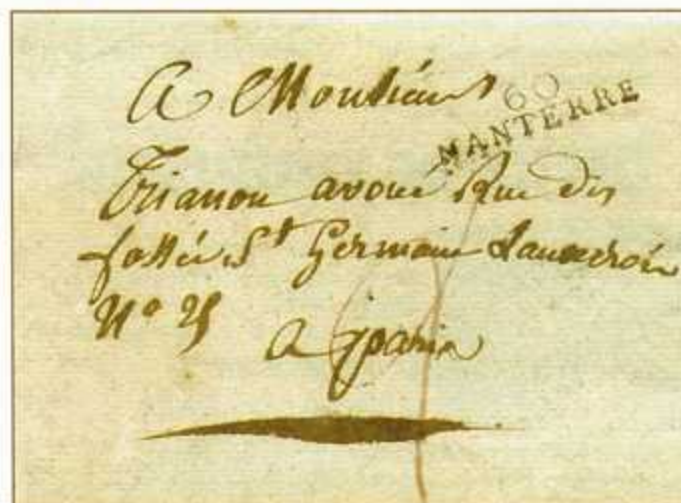 A Monsieur
60
NANTERRE
Trianon avoué Rue des
fossés St Germain Lauxerrois
N° 25
a paris